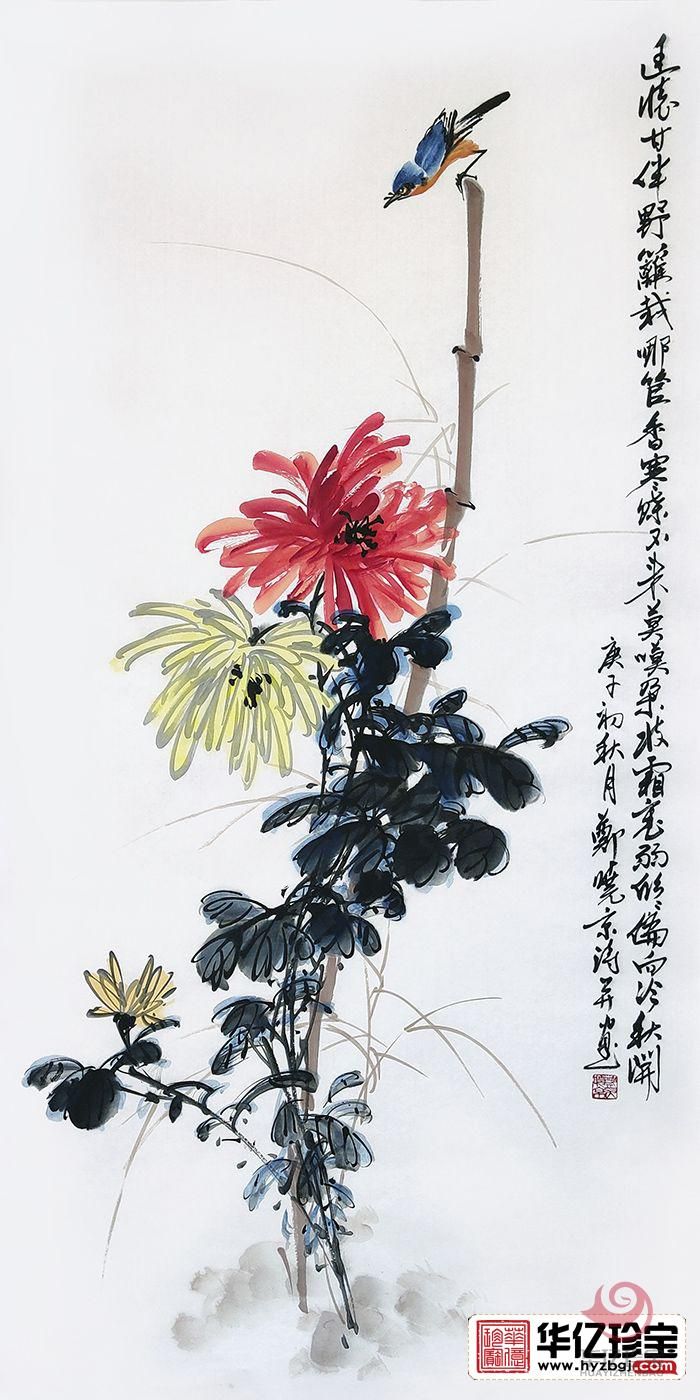 懷甘伴野籬栽哪管香寒蝶不来莫嘆柔枝霜裏弱欣々偏向冷秋開
庚子初秋月鄭曉京诗并畫
华亿珍宝
www.hyzbgj.com
HUAYIZHENBAO